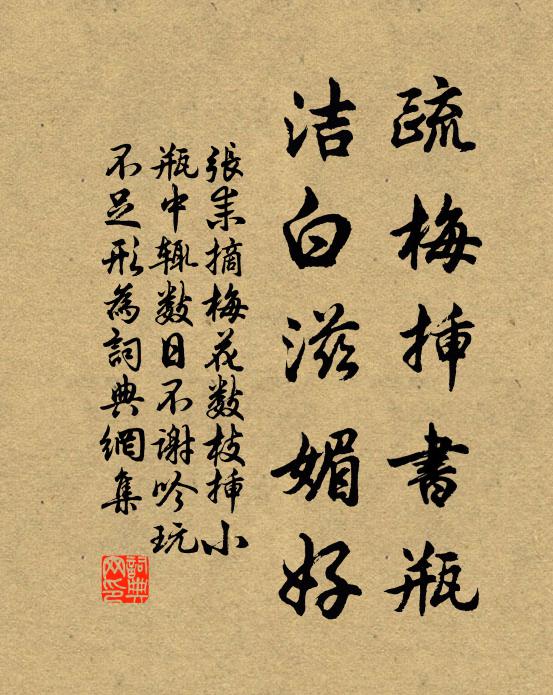 疏梅揷書瓶
洁白滋媚好
張耒摘梅花數枝揷小
瓶中輒數日不謝吟玩
不足形為詞典網集
詞典
网印